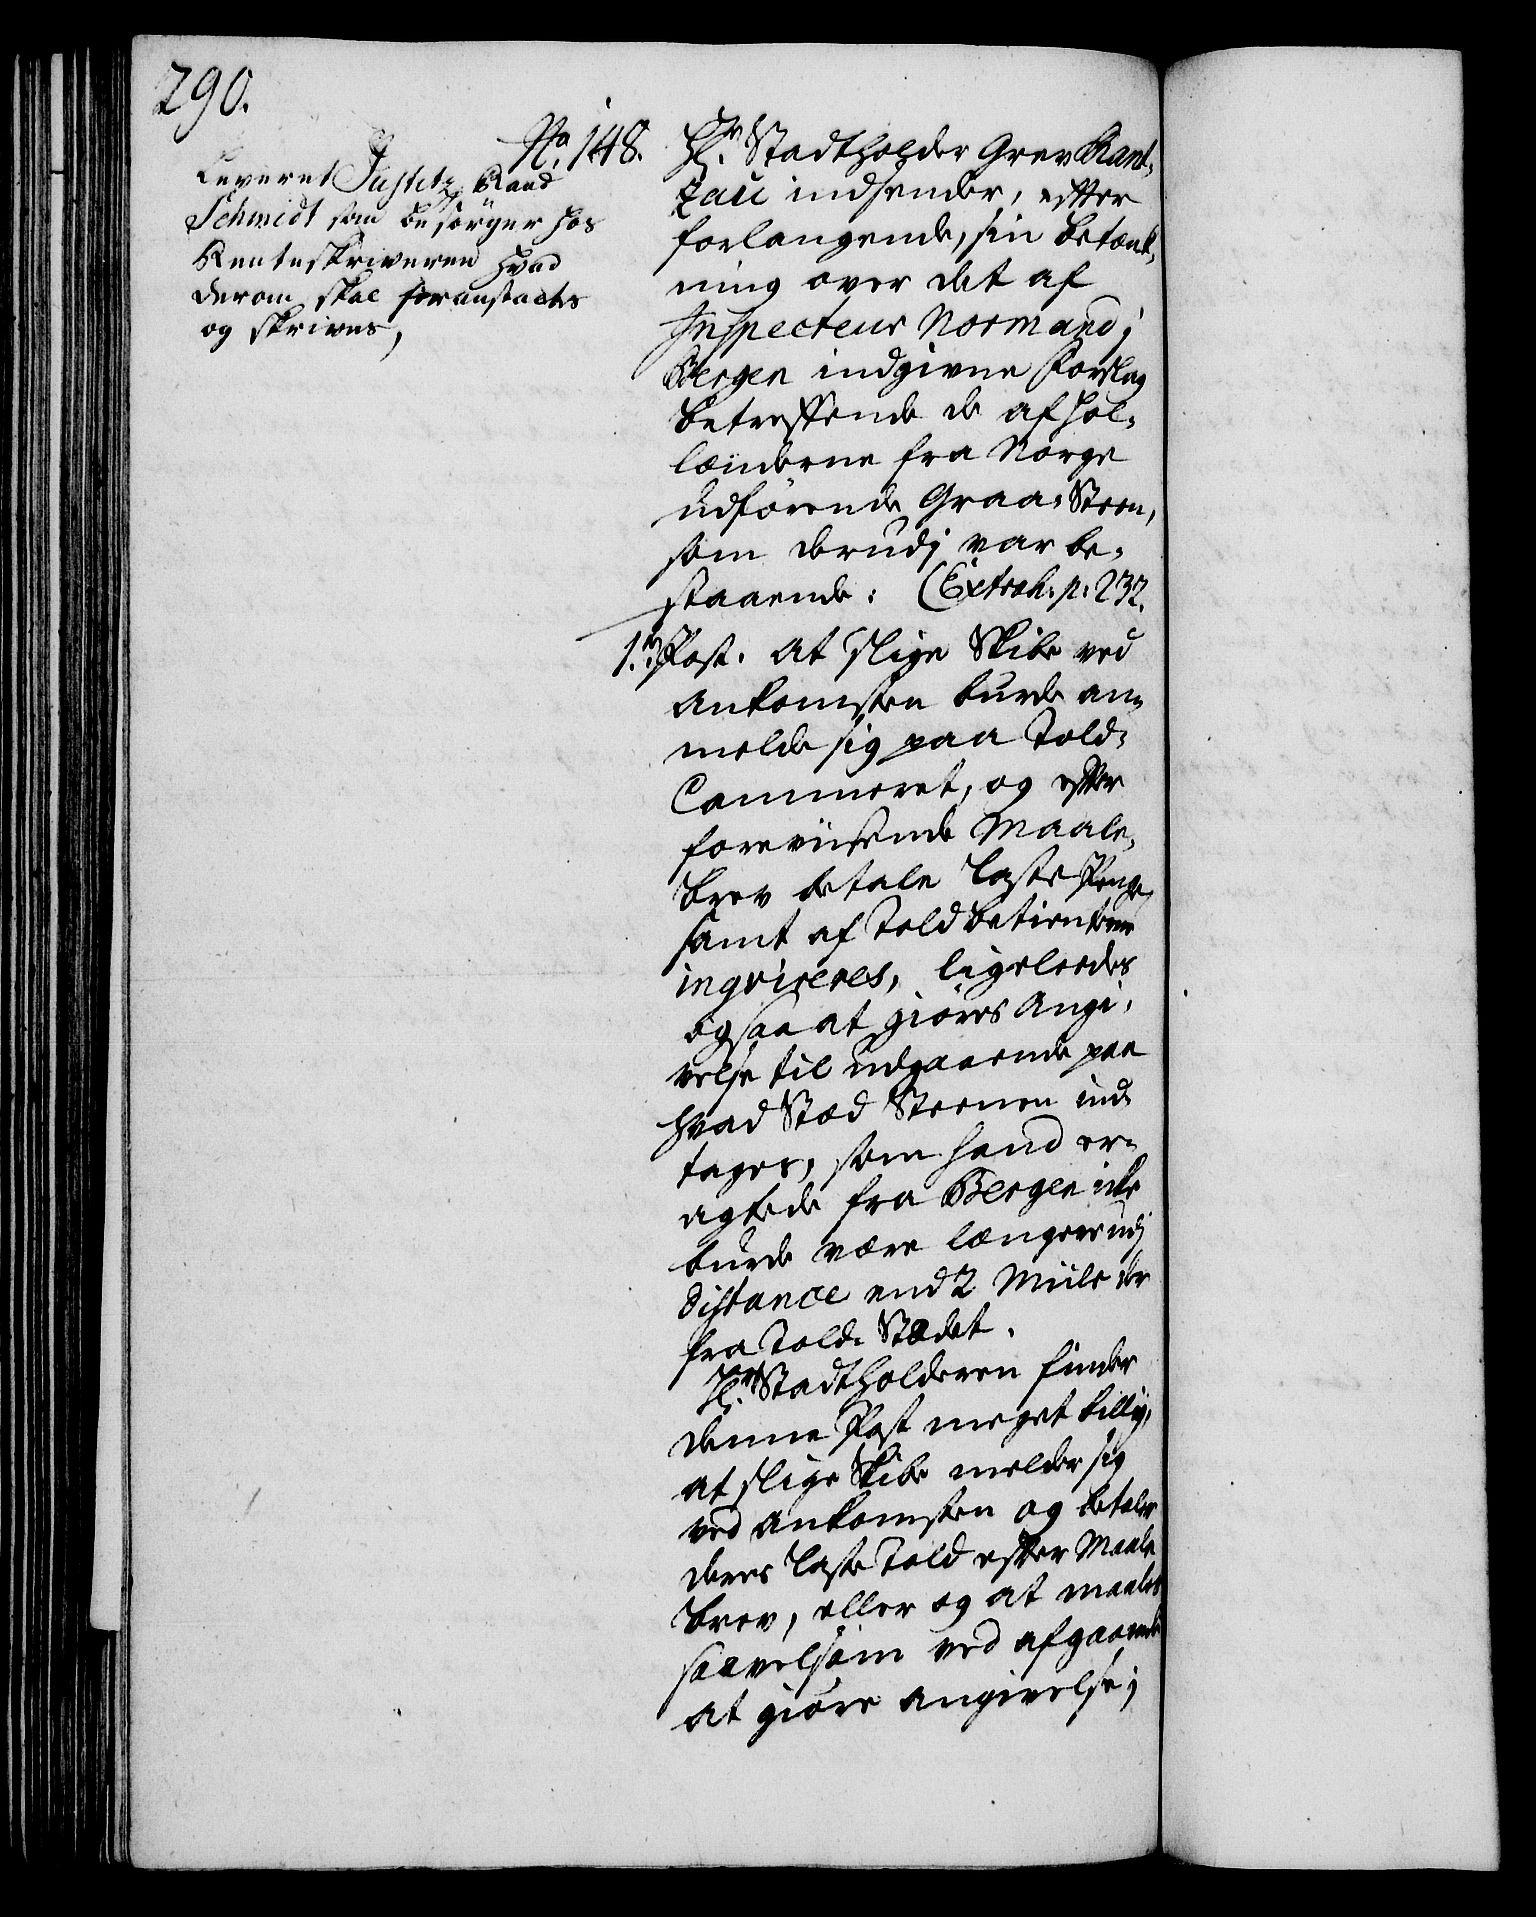 290.
No. 148.
Leveret Justitz Raad
Schmidt som besörger hos
Renteskriveren hvad
derom skal foranstaltes
og skrives,
Hr. Stadtholder Grev Rant-
zau indsender, efter
forlangende, sin betænk-
ning over det af
Inspecteur Normand j
Bergen indgivne Forslag
betreffende de af Hol-
lænderne fra Norge
udförende Graa-Steen,
som derudj var be-
staaende: (Extrah: p: 232.
1.te Post. At slige Skibe ved
ankomsten burde an-
melde sig paa Told-
Cammeret, og efter
foreviisende Maale-
brev betale Laste Penge
samt af Toldbetienterne
inqvireres, ligeledes
ogsaa at giöres Angi-
velse til udgaaende paa
hvad Stæd Steenen ind-
tages, som hand er-
agtede fra Bergen icke
burde være længere udj
distance end 2 Miile der
fra Told-Stædet.
Hr. Stadtholderen finder
denne Post meget billig,
at slige Skibe melder sig
ved ankomsten og betaler
deres Laste Told efter Maale
brev, eller og at maales
saavelsom ved afgaaende
at giöre angivelse;